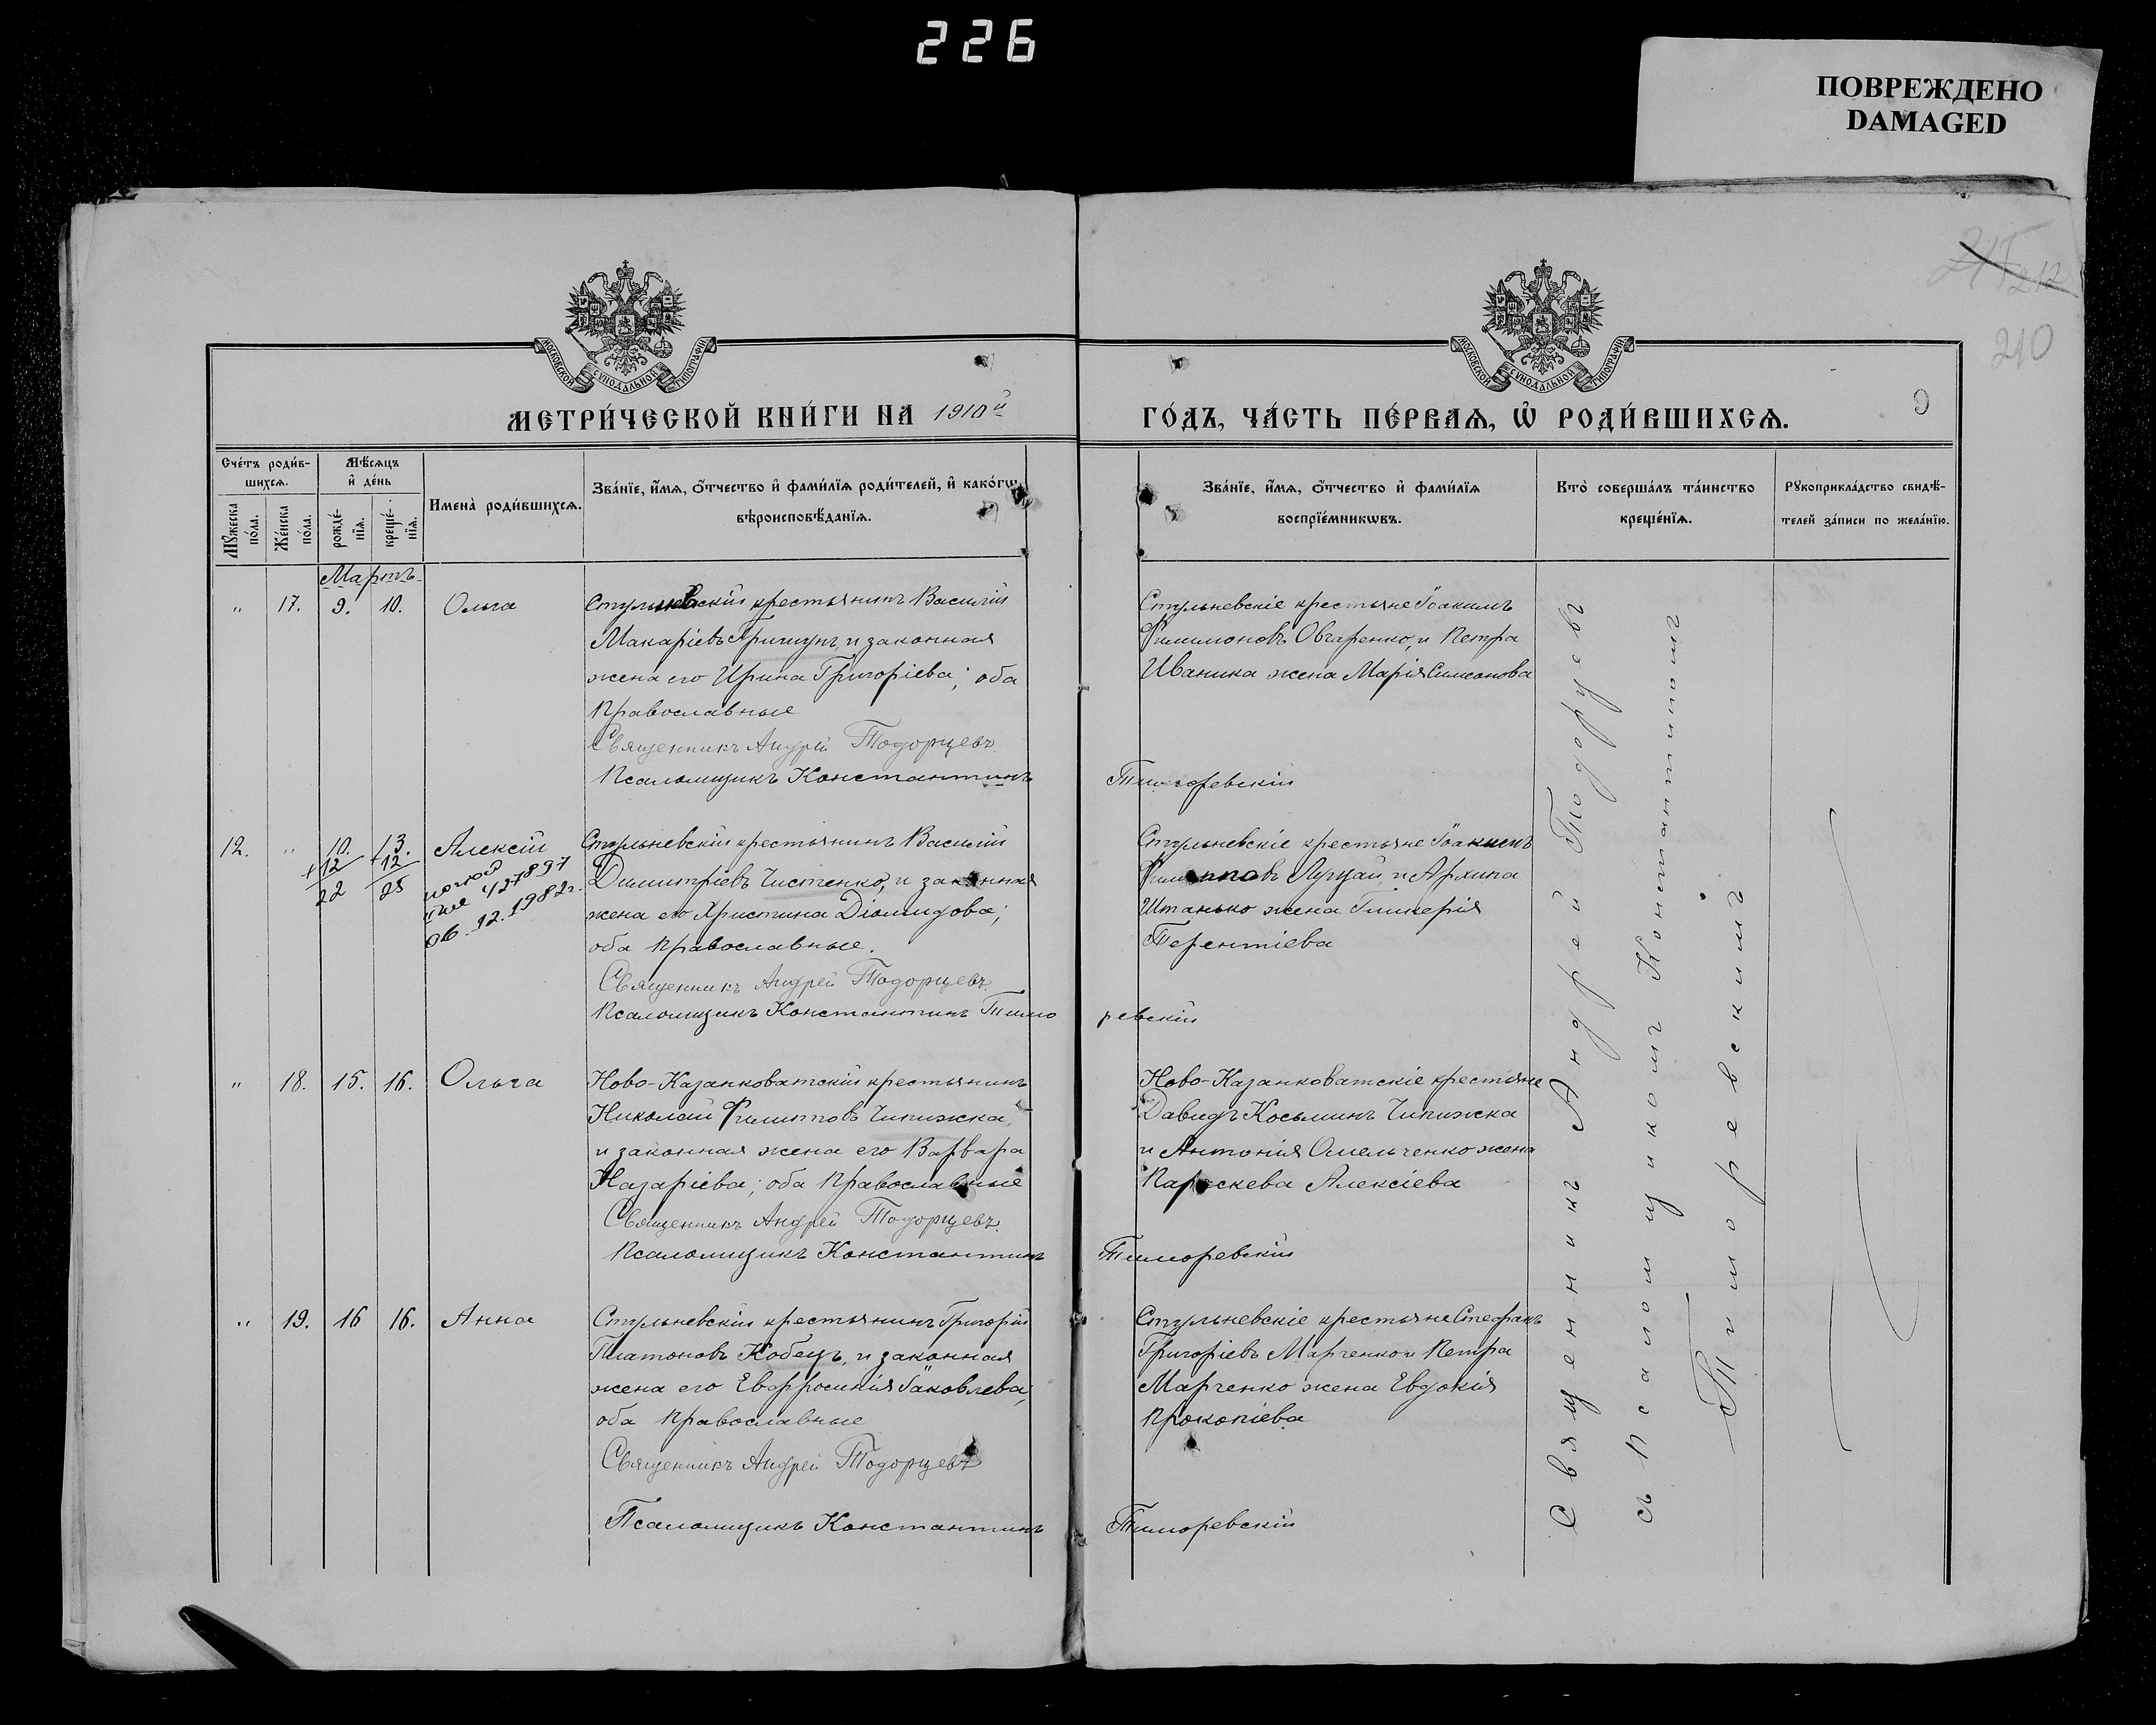 226
ПОВРЕЖДЕНО
DAMAGED
212
210
9
МОСКОВСКОЙ СУНОДАЛЬНОЙ ТИПОГРАФІИ
МОСКОВСКОЙ СУНОДАЛЬНОЙ ТИПОГРАФІИ
МЕТРИ́ЧЕСКОЙ КНИ́ГИ НА 1910й
ГО́ДЪ, ЧА́СТЬ ПЕ́РВАѦ, Ѡ҆ РОДИ́ВШИХСѦ.
Сче́тъ роди́в-
шихсѧ.
Мꙋжеска по́ла.
Же́нска по́ла.
Мѣ́сѧцъ
и҆ де́нь
рожде́-
нїѧ.
креще́-
нїѧ.
Имена̀ роди́вшихсѧ.
Зва́нїе, и҆́мѧ, ѻ҆́тчество и҆ фами́лїѧ роди́телей, и҆ како́гѡ
вѣроисповѣ́данїѧ.
Зва́нїе, и҆́мѧ, ѻ҆́тчество и҆ фами́лїѧ
воспрїе́мникѡвъ.
Кто̀ соверша́лъ та́инство
креще́нїѧ.
Рꙋкоприкла́дство свидѣ́-
телей за́писи по жела́нїю.
Мартъ
" 17. 9. 10. Ольга
Стульневскій крестьянинъ Василій
Макаріевъ Гришунъ, и законная
жена его Ирина Григоріева; оба
Православные
Священникъ Андрей Тодорцевъ
Псаломщикъ Константинъ Тиморевскій
Стульневскіе крестьяне Іоакимъ
Филимоновъ Овчаренко, и Петра
Иваника жена Марія Симеонова
12. " 10. 13. Алексій
+12 +12
22 25
427897
12.1982г.
Стульневскій крестьянинъ Василій
Димитріевъ Чистенко, и законная
жена его Христина Діомидова;
оба Православные.
Священникъ Андрей Тодорцевъ
Псаломщикъ Константинъ Тиморевскій
Стульневскіе крестьяне Іоакимъ
Филипповъ Луцай, и Архипа
Штанько жена Гликерія
Терентіева
" 18. 15. 16. Ольга
Ново-Казанковатскій крестьянинъ
Николай Филипповъ Чипижка,
и законная жена его Варвара
Назаріева; оба Православные
Священникъ Андрей Тодорцевъ
Псаломщикъ Константинъ Тиморевскій
Ново-Казанковатскіе крестьяне
Давидъ Косьминъ Чипижка
и Антонія Омельченко жена
Параскева Алексіева
" 19. 16 16. Анна
Стульневскій крестьянинъ Григорій
Платоновъ Кобецъ, и законная
жена его Евфросинія Іаковлева;
оба Православные
Священникъ Андрей Тодорцевъ
Псаломщикъ Константинъ Тиморевскій
Стульневскіе крестьяне Стефанъ
Григоріевъ Марченко и Петра
Марченко жена Евдокія
Прокопіева
Священникъ Андрей Тодорцевъ
съ Псаломщикомъ Константиномъ
Тиморевскимъ